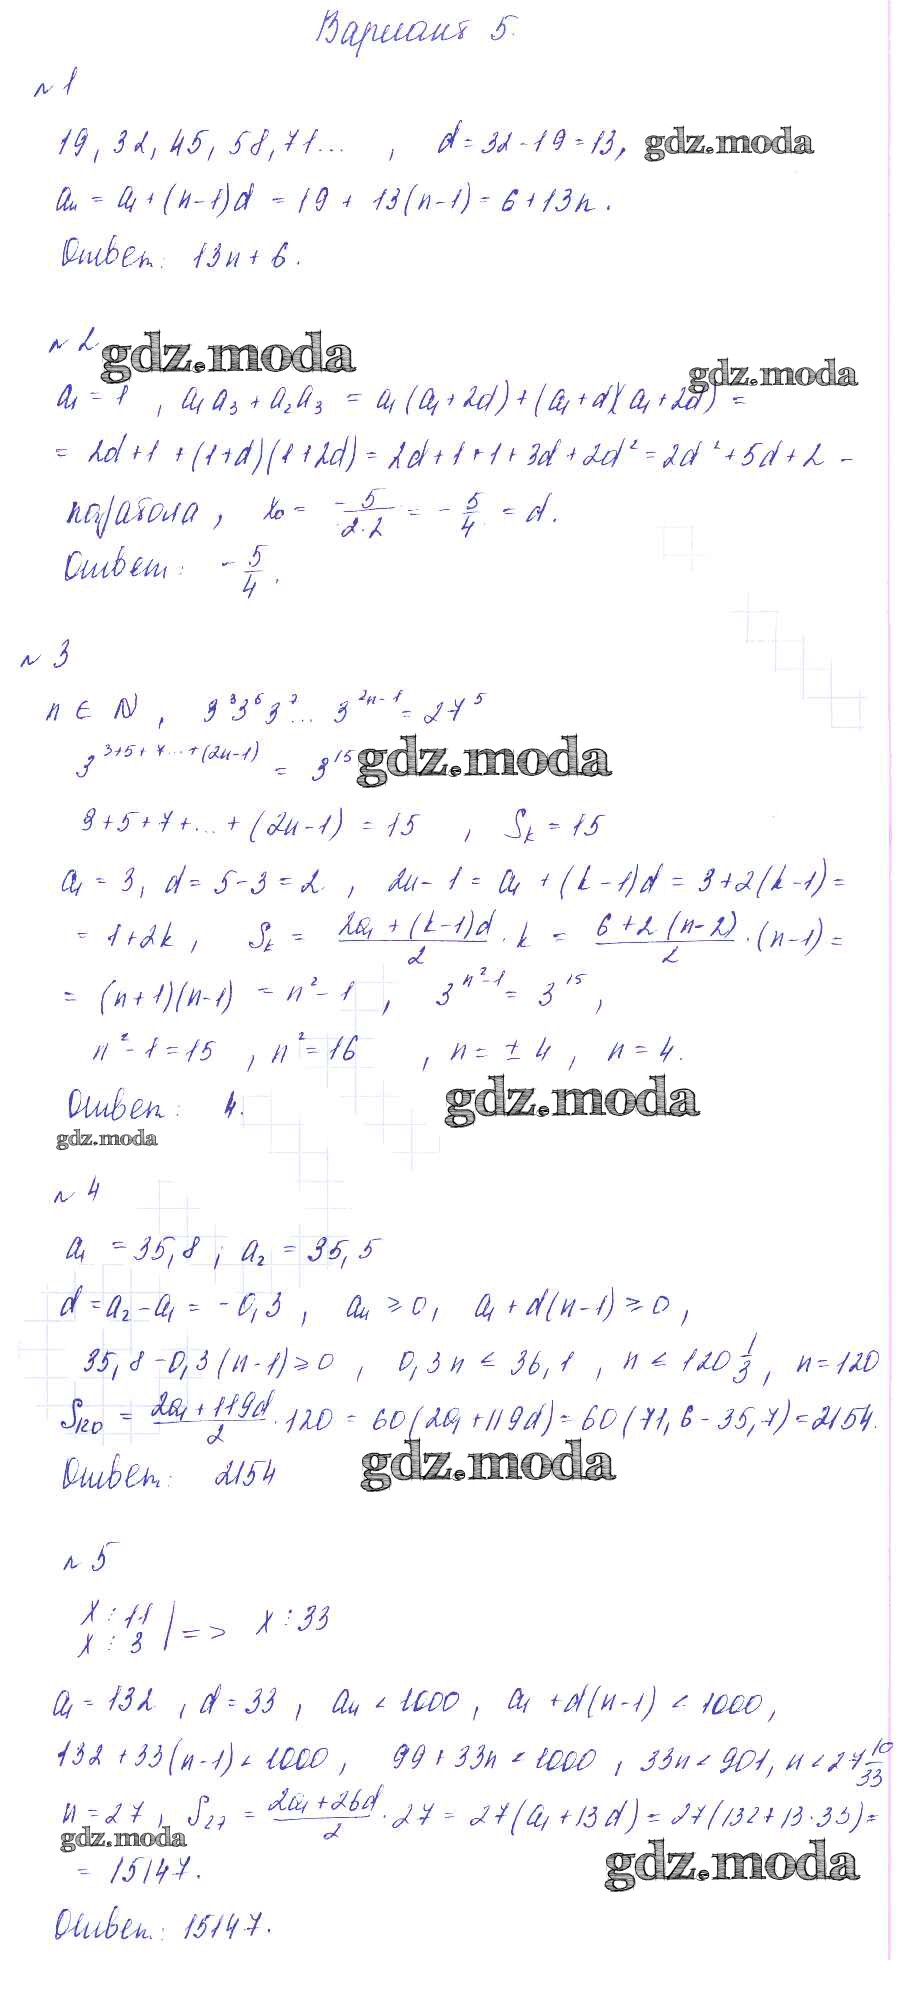 Вариант 5.
№ 1
19, 32, 45, 58, 71... , d = 32 - 19 = 13, gdz.moda
aₙ = a₁ + (n-1)d = 19 + 13(n-1) = 6 + 13n.
Ответ: 13n + 6.
№ 2 gdz.moda
gdz.moda
a₁ = 1 , a₁a₃ + a₂a₃ = a₁(a₁ + 2d) + (a₁ + d)(a₁ + 2d) =
= 2d + 1 + (1+d)(1+2d) = 2d + 1 + 1 + 3d + 2d² = 2d² + 5d + 2 -
парабола , x₀ = -5/(2·2) = -5/4 = d.
Ответ: -5/4.
№ 3
n ∈ N , 3³3⁵3⁷... 3²ⁿ⁻¹ = 27⁵
3^(3+5+7...+(2n-1)) = 3¹⁵ gdz.moda
3+5+7+...+(2n-1) = 15 , Sₖ = 15
a₁ = 3, d = 5-3 = 2 , 2n-1 = a₁ + (k-1)d = 3+2(k-1) =
= 1+2k , Sₖ = (2a₁ + (k-1)d)/2 · k = (6+2(n-2))/2 · (n-1) =
= (n+1)(n-1) = n²-1 , 3^(n²-1) = 3¹⁵ ,
n²-1 = 15 , n² = 16 , n = ± 4 , n = 4.
Ответ: 4. gdz.moda
gdz.moda
№ 4
a₁ = 35,8 ; a₂ = 35,5
d = a₂ - a₁ = -0,3 , aₙ ≥ 0, a₁ + d(n-1) ≥ 0 ,
35,8 - 0,3(n-1) ≥ 0 , 0,3n ≤ 36,1 , n ≤ 120 1/3 , n = 120
S₁₂₀ = (2a₁ + 119d)/2 · 120 = 60(2a₁ + 119d) = 60(71,6 - 35,7) = 2154.
Ответ: 2154 gdz.moda
№ 5
x ⋮ 11
x ⋮ 3 | => x ⋮ 33
a₁ = 132 , d = 33 , aₙ < 1000 , a₁ + d(n-1) < 1000,
132 + 33(n-1) < 1000 , 99 + 33n < 1000 , 33n < 901, n < 27 10/33
n = 27 , S₂₇ = (2a₁ + 26d)/2 · 27 = 27(a₁ + 13d) = 27(132 + 13·33) =
gdz.moda
= 15147. gdz.moda
Ответ: 15147.